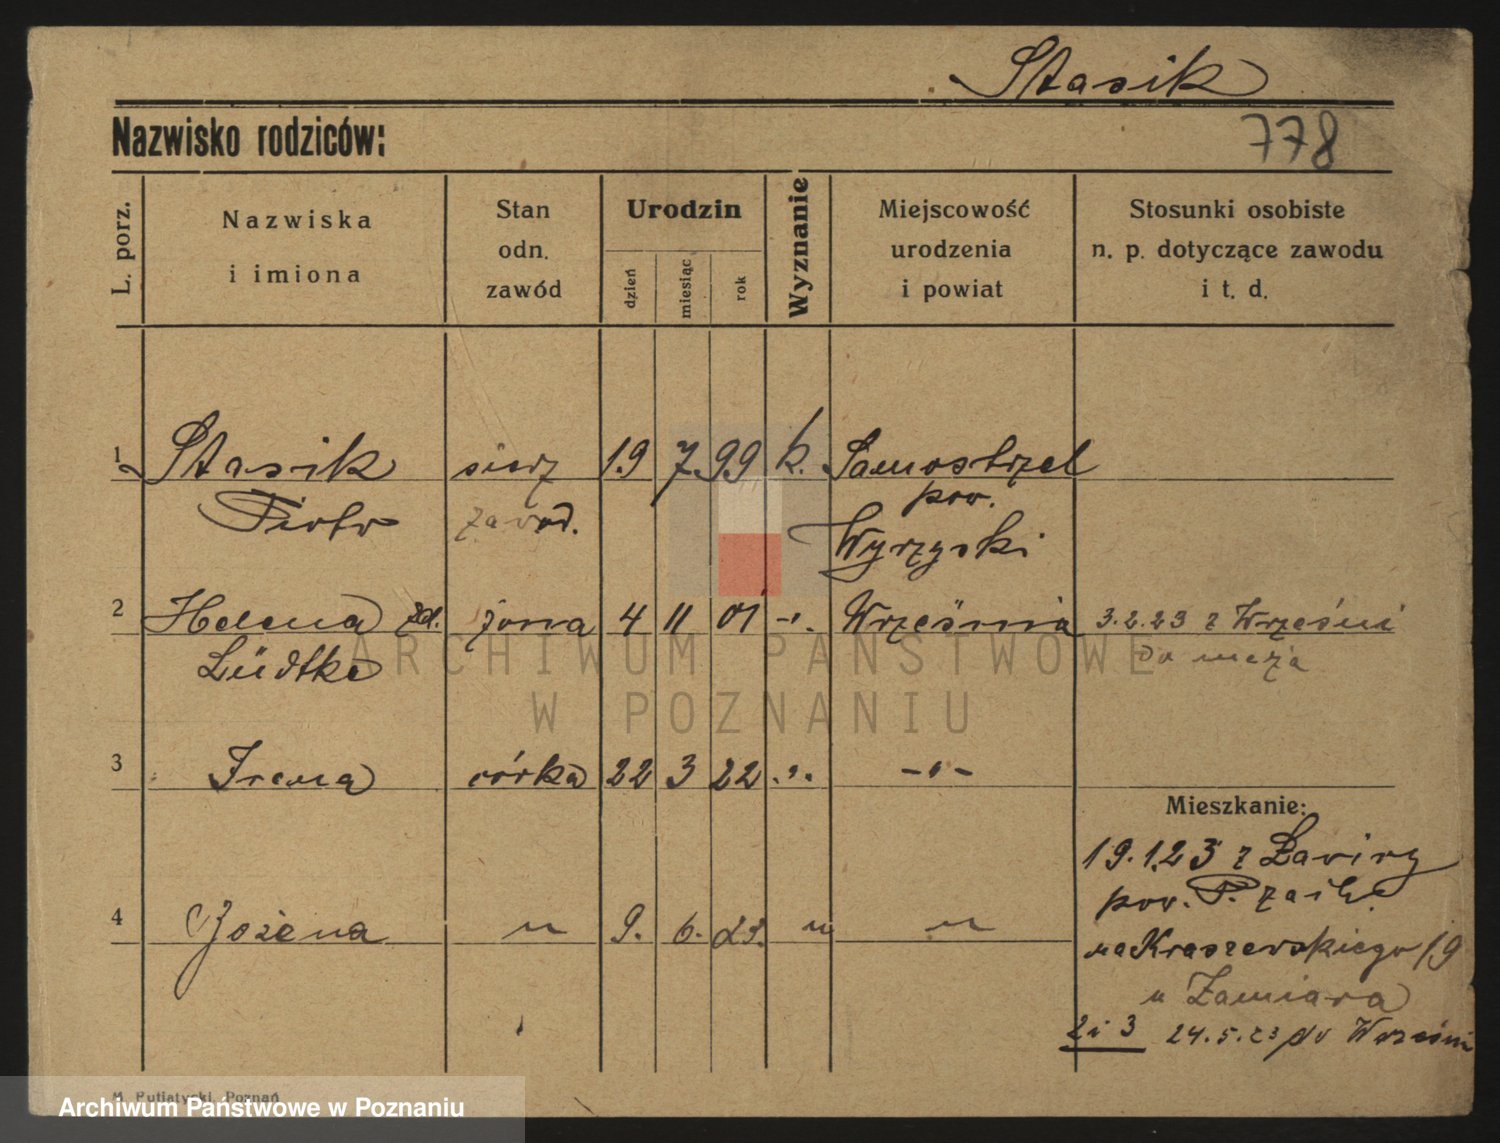 Stasik
Nazwisko rodziców:
778
L. porz.
Nazwiska
i imiona
Stan
odn.
zawód
Urodzin
dzień
miesiąc
rok
Wyznanie
Miejscowość
urodzenia
i powiat
Stosunki osobiste
n. p. dotyczące zawodu
i t. d.
1 Stasik sierż 19 7. 99 k. Samostrzel
Piotr zawod. pow.
Wyrzyski
2 Helena zd. żona 4 11 01 -"- Września 3.2.23 z Wrześni
Lüdtke do męża
3 Irena córka 22 3 22 -"- -"-
Mieszkanie:
19.1.23 z
pow.
4 Bożena " 9. 6. 23. " "
na Kraszewskiego 19
u
2 i 3 24.5.23 do Wrześni
ARCHIWUM PAŃSTWOWE
W POZNANIU
M. Putiatycki, Poznań
Archiwum Państwowe w Poznaniu